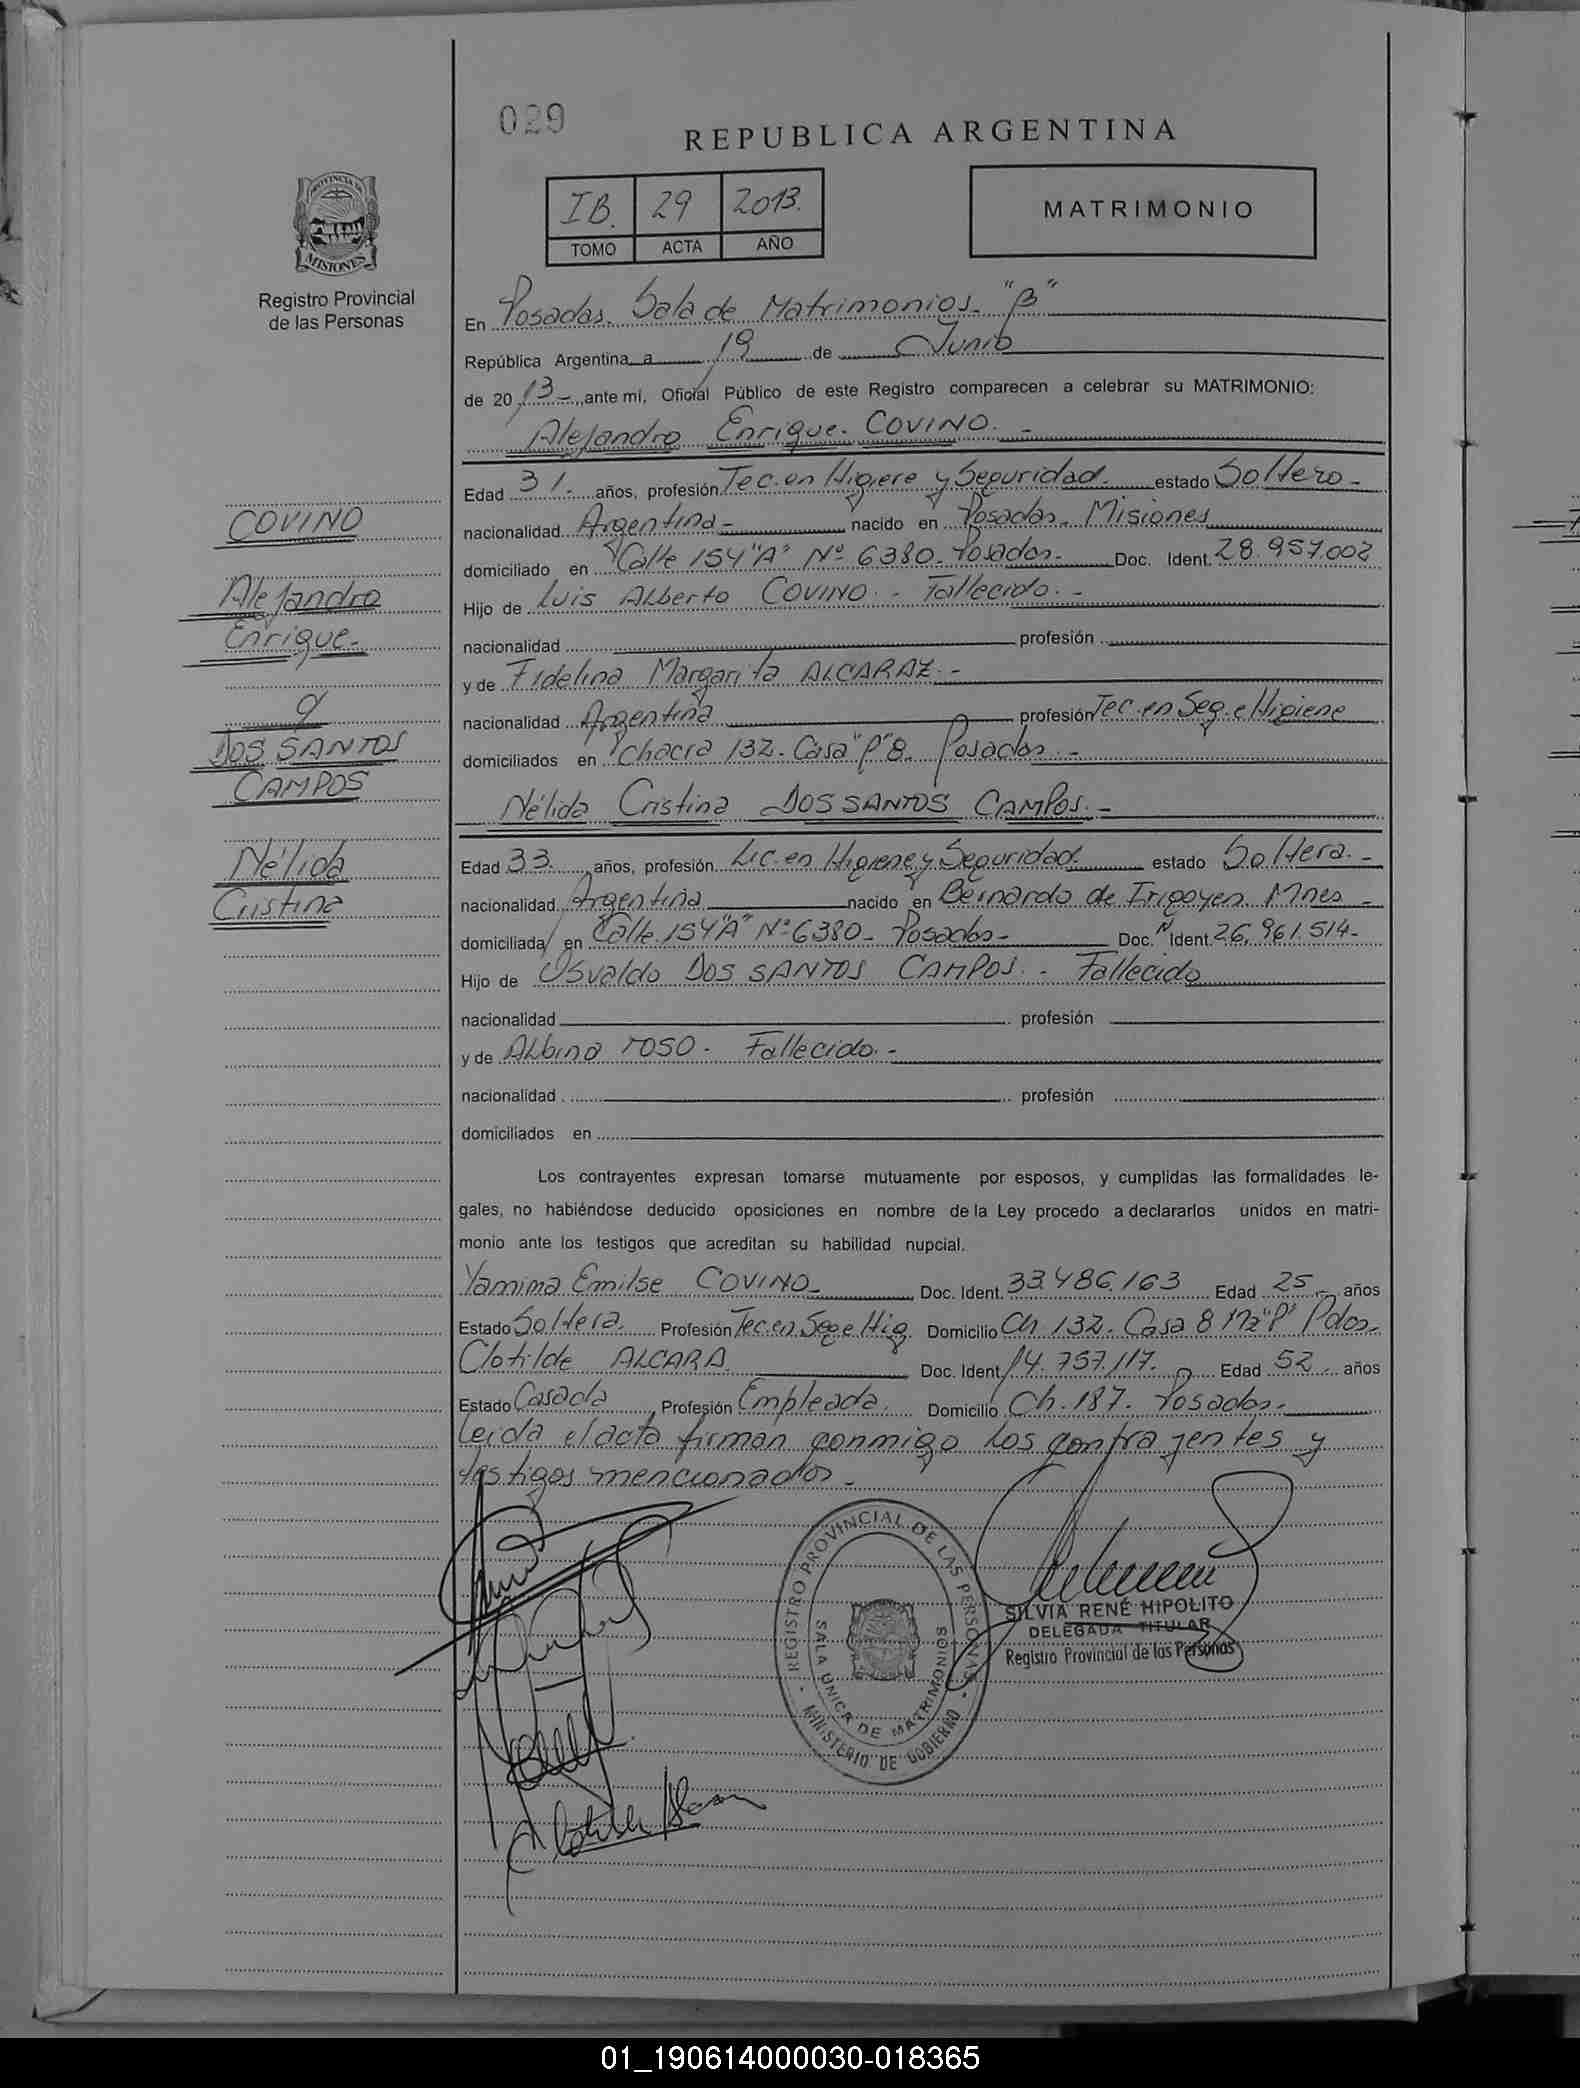 029
REPUBLICA ARGENTINA
IB. 29 2013.
TOMO ACTA AÑO
MATRIMONIO
PROVINCIA DE
MISIONES
Registro Provincial
de las Personas
COVINO
Alejandro
Enrique.-
y
DOS SANTOS
CAMPOS
Nélida
Cristina
En Posadas. Sala de Matrimonios. "B"
República Argentina, a 19 de Junio
de 2013.-, ante mí, Oficial Público de este Registro comparecen a celebrar su MATRIMONIO:
Alejandro Enrique. COVINO. -
Edad 31.- años, profesión Tec. en Higiene y Seguridad. estado Soltero-
nacionalidad Argentina- nacido en Posadas- Misiones
domiciliado en Calle 154"A" Nº 6380- Posadas- Doc. Ident. 28.957.002
Hijo de Luis Alberto COVINO.- Fallecido.-
nacionalidad profesión
y de Fidelina Margarita ALCARAZ.-
nacionalidad Argentina profesión Tec. en Seg. e Higiene
domiciliados en Chacra 132. Casa "P" 8. Posadas.-
Nélida Cristina DOS SANTOS CAMPOS.-
Edad 33. años, profesión Lic. en Higiene y Seguridad. estado Soltera.-
nacionalidad Argentina nacido en Bernardo de Irigoyen Mnes-
domiciliada en Calle 154"A" Nº 6380- Posadas- Doc. Ident. 26.961.514-
Hijo de Osvaldo DOS SANTOS CAMPOS.- Fallecido
nacionalidad profesión
y de Albina TOSO- Fallecido.-
nacionalidad profesión
domiciliados en
Los contrayentes expresan tomarse mutuamente por esposos, y cumplidas las formalidades le-
gales, no habiéndose deducido oposiciones en nombre de la Ley procedo a declararlos unidos en matri-
monio ante los testigos que acreditan su habilidad nupcial.
Yamima Emilse COVINO- Doc. Ident. 33.486.163 Edad 25.- años
Estado Soltera. Profesión Tec. en Seg e Hig. Domicilio Ch 132- Casa 8 Mz "P" Pdas-
Clotilde ALCARA. Doc. Ident 14.757.117. Edad 52 años
Estado Casada Profesión Empleada. Domicilio Ch. 187. Posadas-
Leida el acta firman conmigo los contrayentes y
testigos mencionados-
REGISTRO PROVINCIAL DE LAS PERSONAS
SALA ÚNICA DE MATRIMONIOS
MINISTERIO DE GOBIERNO
SILVIA RENÉ HIPOLITO
DELEGADA TITULAR
Registro Provincial de las Personas
01_190614000030-018365